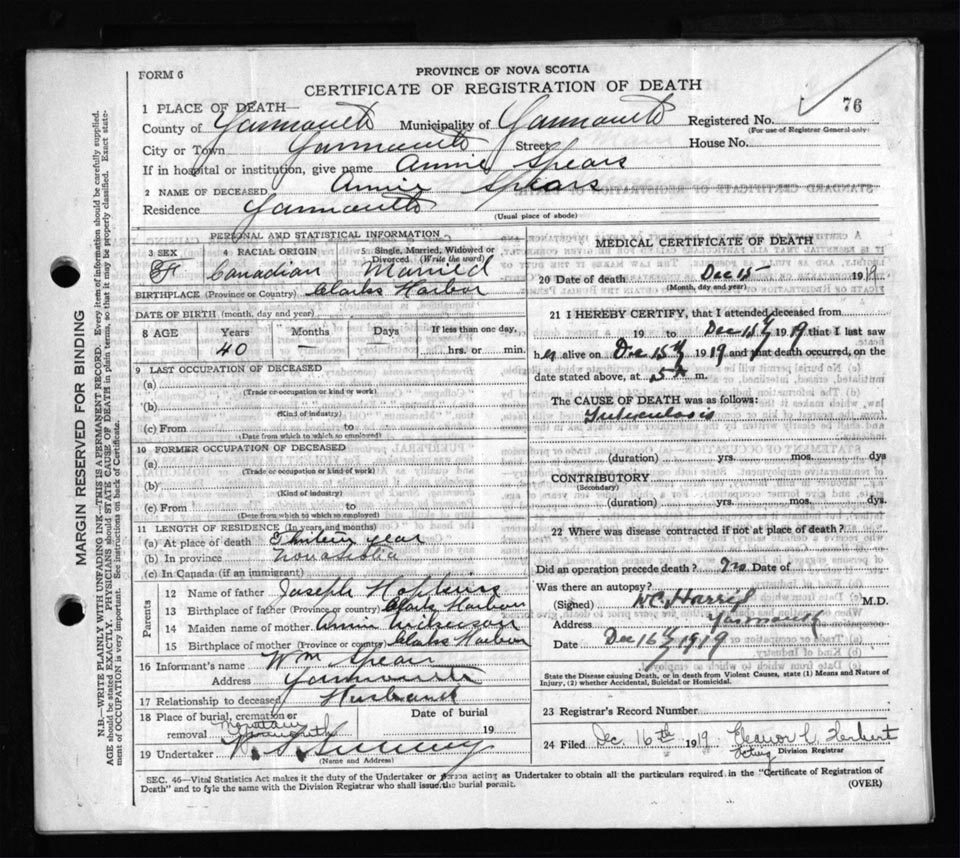 FORM 6
PROVINCE OF NOVA SCOTIA
CERTIFICATE OF REGISTRATION OF DEATH
76
1 PLACE OF DEATH—
County of Yarmouth Municipality of Yarmouth Registered No.
(For use of Registrar General only)
City or Town Yarmouth Street House No.
If in hospital or institution, give name Annie Spears
2 NAME OF DECEASED Annie Spears
Residence Yarmouth
(Usual place of abode)
PERSONAL AND STATISTICAL INFORMATION
3 SEX 4 RACIAL ORIGIN 5 Single, Married, Widowed or Divorced. (Write the word)
F Canadian Married
BIRTHPLACE (Province or Country) Clarks Harbor
DATE OF BIRTH (month, day and year)
8 AGE Years Months Days If less than one day,
40 — — hrs. or min.
9 LAST OCCUPATION OF DECEASED
(a)
(Trade or occupation or kind of work)
(b)
(Kind of industry)
(c) From to
(Date from which to which so employed)
10 FORMER OCCUPATION OF DECEASED
(a)
(Trade or occupation or kind of work)
(b)
(Kind of industry)
(c) From to
(Date from which to which so employed)
11 LENGTH OF RESIDENCE (In years and months)
(a) At place of death year
(b) In province Nova Scotia
(c) In Canada (if an immigrant)
Parents
12 Name of father Joseph Hopkins
13 Birthplace of father (Province or country) Clarks Harbor
14 Maiden name of mother Annie
15 Birthplace of mother (Province or country) Clarks Harbor
16 Informant's name Wm Spears
Address Yarmouth
17 Relationship to deceased Husband
18 Place of burial, cremation or removal Mountain Yarmouth Date of burial 19
19 Undertaker
(Name and Address)
MEDICAL CERTIFICATE OF DEATH
20 Date of death Dec 15 1919
(Month, day and year)
21 I HEREBY CERTIFY, that I attended deceased from
19 to Dec 15th 1919 that I last saw
her alive on Dec 15th 1919 and that death occurred, on the
date stated above, at 5 m.
The CAUSE OF DEATH was as follows:
Tuberculosis
(duration) yrs. mos. dys
CONTRIBUTORY
(Secondary)
(duration) yrs. mos. dys.
22 Where was disease contracted if not at place of death?
Did an operation precede death? No Date of
Was there an autopsy?
(Signed) M.D.
Address Yarmouth
Date Dec 16th 1919
State the Disease causing Death, or in death from Violent Causes, state (1) Means and Nature of Injury, (2) whether Accidental, Suicidal or Homicidal.
23 Registrar's Record Number
24 Filed Dec. 16th 1919 Eleanor C. Herbert
Acting Division Registrar
SEC. 46—Vital Statistics Act makes it the duty of the Undertaker or person acting as Undertaker to obtain all the particulars required in the "Certificate of Registration of
Death" and to fyle the same with the Division Registrar who shall issue the burial permit. (OVER)
MARGIN RESERVED FOR BINDING
N.B.—WRITE PLAINLY WITH UNFADING INK—THIS IS A PERMANENT RECORD. Every item of information should be carefully supplied.
AGE should be stated EXACTLY. PHYSICIANS should STATE CAUSE OF DEATH in plain terms, so that it may be properly classified. Exact state-
ment of OCCUPATION is very important. See instructions on back of Certificate.